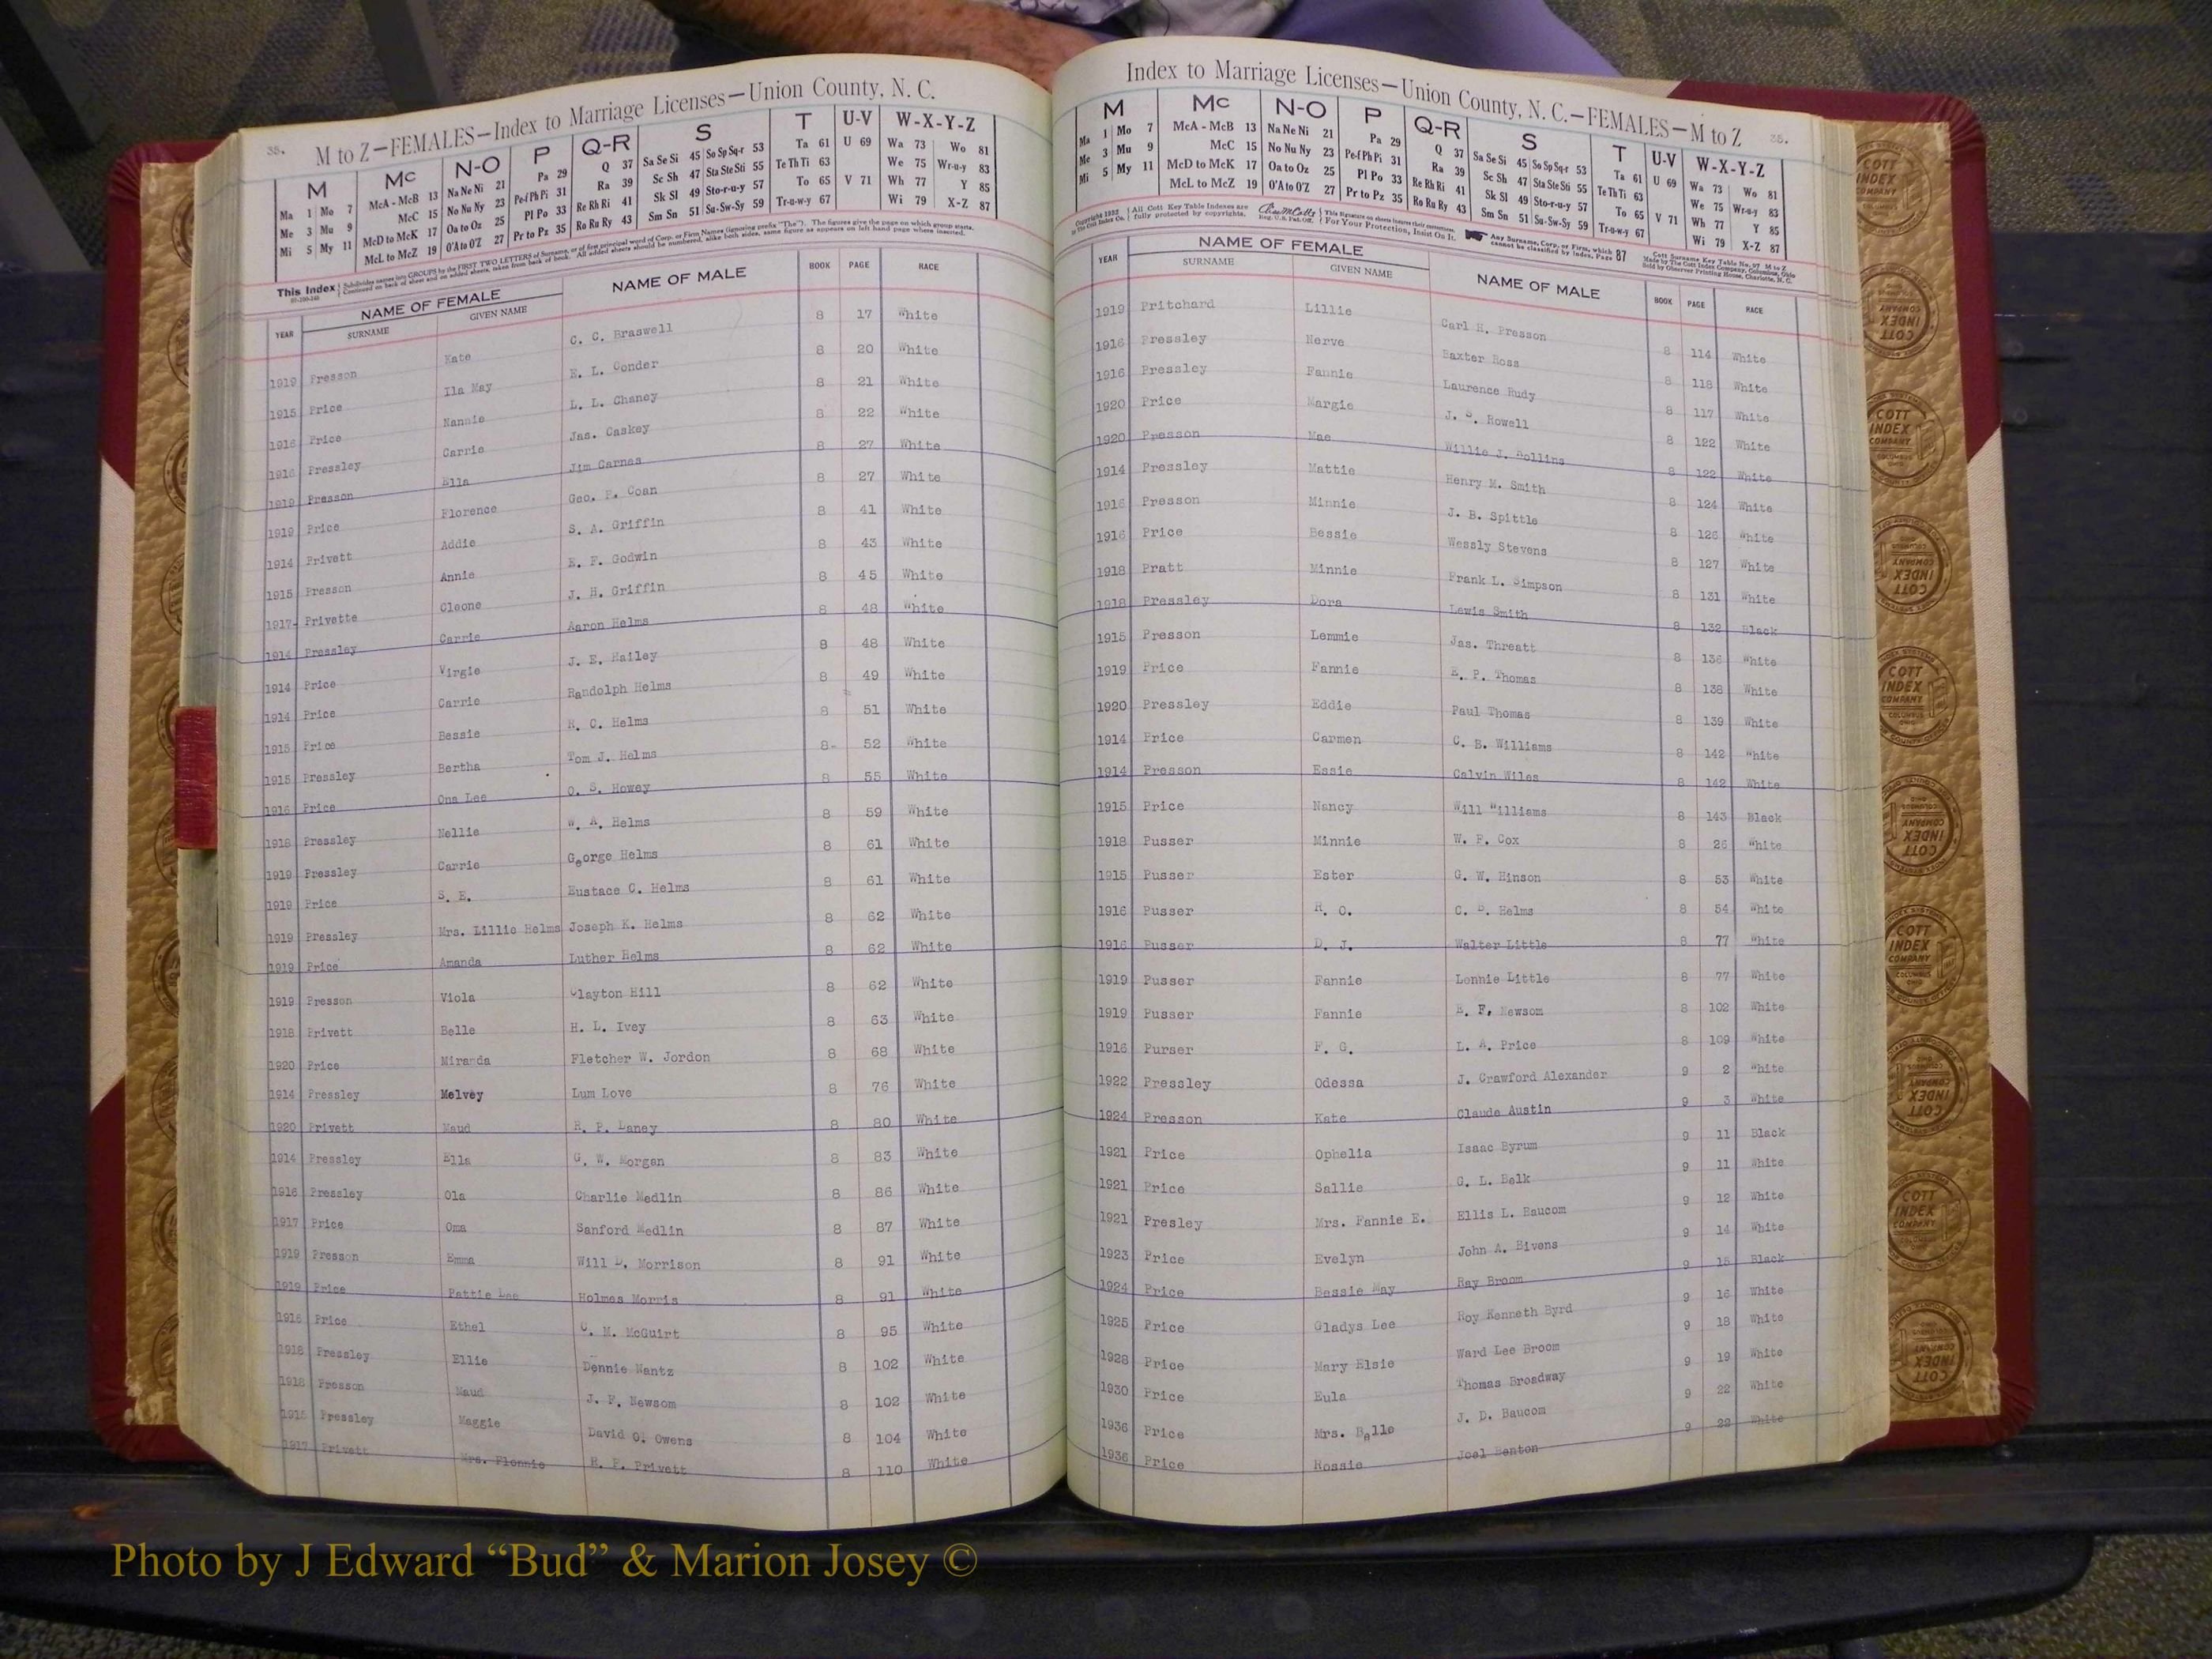 35.
M to Z—FEMALES—Index to Marriage Licenses—Union County, N. C.
M Mc N-O P Q-R S T U-V W-X-Y-Z
Ma 1 Mo 7 McA - McB 13 Na Ne Ni 21 Pa 29 Q 37 Sa Se Si 45 So Sp Sq-r 53 Ta 61 U 69 Wa 73 Wo 81
Me 3 Mu 9 McC 15 No Nu Ny 23 Pe-f Ph Pi 31 Ra 39 Sc Sh 47 Sta Ste Sti 55 Te Th Ti 63 We 75 Wr-u-y 83
Mi 5 My 11 McD to McK 17 Oa to Oz 25 Pl Po 33 Re Rh Ri 41 Sk Sl 49 Sto-r-u-y 57 To 65 V 71 Wh 77 Y 85
McL to McZ 19 O'A to O'Z 27 Pr to Pz 35 Ro Ru Ry 43 Sm Sn 51 Su-Sw-Sy 59 Tr-u-w-y 67 Wi 79 X-Z 87
This Index
NAME OF FEMALE NAME OF MALE
YEAR SURNAME GIVEN NAME BOOK PAGE RACE
1919 Presson Kate C. C. Braswell 8 17 White
1915 Price Ila May E. L. Conder 8 20 White
1916 Price Nannie L. L. Chaney 8 21 White
1916 Pressley Carrie Jas. Caskey 8 22 White
1919 Presson Ella Jim Carnes 8 27 White
1919 Price Florence Geo. P. Coan 8 27 White
1914 Privett Addie S. A. Griffin 8 41 White
1915 Presson Annie E. F. Godwin 8 43 White
1917 Privette Cleone J. H. Griffin 8 45 White
1914 Pressley Carrie Aaron Helms 8 48 White
1914 Price Virgie J. E. Hailey 8 48 White
1914 Price Carrie Randolph Helms 8 49 White
1915 Price Bessie R. C. Helms 8 51 White
1915 Pressley Bertha Tom J. Helms 8 52 White
1916 Price Ona Lee O. S. Howey 8 55 White
1918 Pressley Nellie W. A. Helms 8 59 White
1919 Pressley Carrie George Helms 8 61 White
1919 Price S. E. Eustace C. Helms 8 61 White
1919 Pressley Mrs. Lillie Helms Joseph K. Helms 8 62 White
1919 Price Amanda Luther Helms 8 62 White
1919 Presson Viola Clayton Hill 8 62 White
1918 Privett Belle H. L. Ivey 8 63 White
1920 Price Miranda Fletcher W. Jordon 8 68 White
1914 Pressley Melvey Lum Love 8 76 White
1920 Privett Maud R. P. Laney 8 80 White
1914 Pressley Ella G. W. Morgan 8 83 White
1916 Pressley Ola Charlie Medlin 8 86 White
1917 Price Oma Sanford Medlin 8 87 White
1919 Presson Emma Will D. Morrison 8 91 White
1919 Price Pattie Lee Holmes Morris 8 91 White
1916 Price Ethel C. M. McGuirt 8 95 White
1918 Pressley Ellie Dennie Nantz 8 102 White
1918 Presson Maud J. F. Newsom 8 102 White
1915 Pressley Maggie David O. Owens 8 104 White
1917 Privett Mrs. Flonnie H. F. Privett 8 110 White
Index to Marriage Licenses—Union County, N. C.—FEMALES—M to Z
35.
M Mc N-O P Q-R S T U-V W-X-Y-Z
Ma 1 Mo 7 McA - McB 13 Na Ne Ni 21 Pa 29 Q 37 Sa Se Si 45 So Sp Sq-r 53 Ta 61 U 69 Wa 73 Wo 81
Me 3 Mu 9 McC 15 No Nu Ny 23 Pe-f Ph Pi 31 Ra 39 Sc Sh 47 Sta Ste Sti 55 Te Th Ti 63 We 75 Wr-u-y 83
Mi 5 My 11 McD to McK 17 Oa to Oz 25 Pl Po 33 Re Rh Ri 41 Sk Sl 49 Sto-r-u-y 57 To 65 V 71 Wh 77 Y 85
McL to McZ 19 O'A to O'Z 27 Pr to Pz 35 Ro Ru Ry 43 Sm Sn 51 Su-Sw-Sy 59 Tr-u-w-y 67 Wi 79 X-Z 87
All Cott Key Table Indexes are fully protected by copyrights.
For Your Protection, Insist On It.
Any Surname, Corp. or Firm, which cannot be classified by Index, Page 87
NAME OF FEMALE NAME OF MALE
YEAR SURNAME GIVEN NAME BOOK PAGE RACE
1919 Pritchard Lillie Carl H. Presson 8 114 White
1916 Pressley Nerve Baxter Ross 8 118 White
1916 Pressley Fannie Laurence Rudy 8 117 White
1920 Price Margie J. S. Rowell 8 122 White
1920 Presson Mae Willie J. Rollins 8 122 White
1914 Pressley Mattie Henry M. Smith 8 124 White
1916 Presson Minnie J. B. Spittle 8 126 White
1916 Price Bessie Wessly Stevens 8 127 White
1918 Pratt Minnie Frank L. Simpson 8 131 White
1918 Pressley Dora Lewis Smith 8 132 Black
1915 Presson Lemmie Jas. Threatt 8 136 White
1919 Price Fannie E. P. Thomas 8 138 White
1920 Pressley Eddie Paul Thomas 8 139 White
1914 Price Carmen C. B. Williams 8 142 White
1914 Presson Essie Calvin Wiles 8 142 White
1915 Price Nancy Will Williams 8 143 Black
1918 Pusser Minnie W. P. Cox 8 26 White
1915 Pusser Ester G. W. Hinson 8 53 White
1916 Pusser R. O. C. B. Helms 8 54 White
1916 Pusser D. J. Walter Little 8 77 White
1919 Pusser Fannie Lonnie Little 8 77 White
1919 Pusser Fannie B. F. Newsom 8 102 White
1916 Purser F. G. L. A. Price 8 109 White
1922 Pressley Odessa J. Crawford Alexander 9 2 White
1924 Presson Kate Claude Austin 9 3 White
1921 Price Ophelia Isaac Byrum 9 11 Black
1921 Price Sallie G. L. Belk 9 11 White
1921 Presley Mrs. Fannie E. Ellis L. Baucom 9 12 White
1923 Price Evelyn John A. Bivens 9 14 White
1924 Price Bessie May Ray Broom 9 15 Black
1925 Price Gladys Lee Roy Kenneth Byrd 9 16 White
1928 Price Mary Elsie Ward Lee Broom 9 18 White
1930 Price Eula Thomas Broadway 9 19 White
1936 Price Mrs. Belle J. D. Baucom 9 22 White
1936 Price Rossie Joel Benton 9 22 White
COTT INDEX COMPANY
Photo by J Edward “Bud” & Marion Josey ©